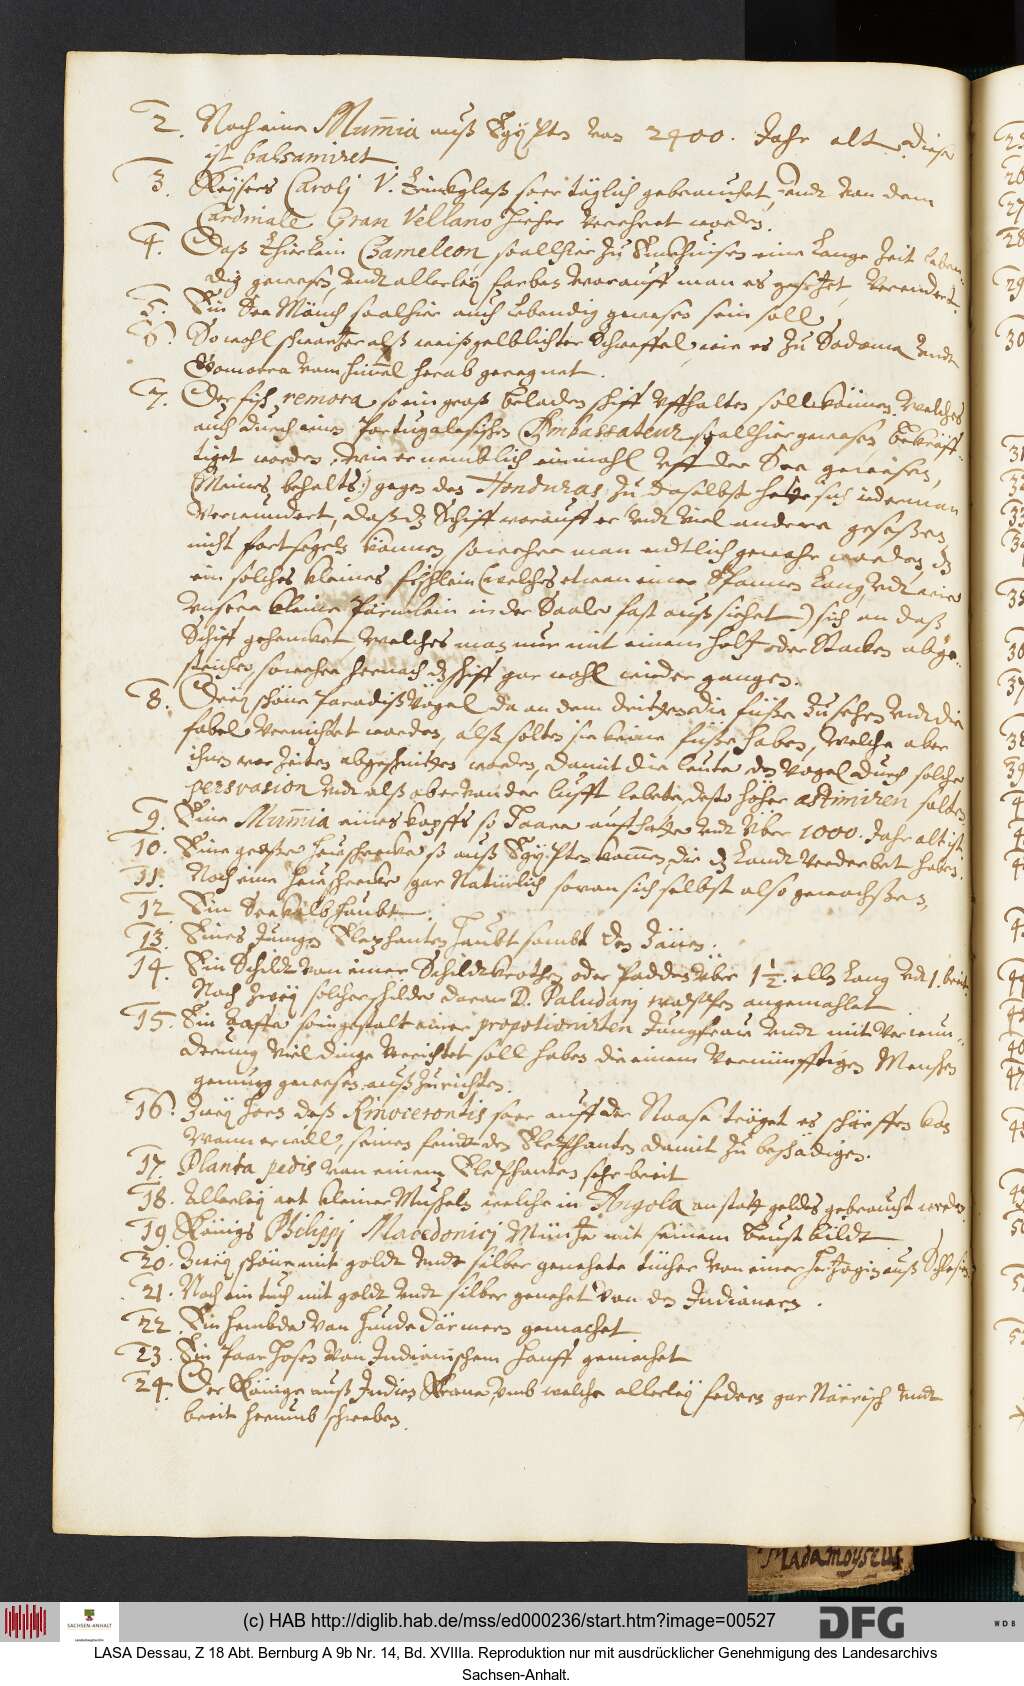 2. Noch eine Mumia auß Egypten von 2400. Jahr alt, diese
ist balsamiret.
3. Kaysers Caroli V. Trinckglaß so er täglich gebrauchet, undt von dem
Cardinale Gran Vellano hieher verehret worden.
4. Daß Thierlein Chameleon so allhier zu Enckhuisen eine lange Zeit leben-
dig gewesen, undt allerley farben worauff man es gesetzet, verendert.
5. Ein See Mönch so alhier auch lebendig gewesen sein soll
6. Sowohl schwartzer alß weißgelblichter Schweffel, wie es zu Sodoma undt
Gomorra vom himmel herab geregnet.
7. Der fisch remora, so ein groß beladen schiff uffhalten soll können, welches
auch durch einen Portugalesischen Ambassateur, so allhier gewesen, bekräff-
tiget worden, wie er nemblich einmahl uff der See gewesen,
(Meines behalts:) gegen den Honduras zu daselbst hette sich iederman
verwundert, daß dz Schiff worauff er undt viel andere geseßen
nicht fortsegeln können, so wehre man endtlich gewahr worden, dz
ein solches kleines fischlein (welches etwan einer Spannen lang, undt wie
unsere kleine in der Saale fast auß siehet) sich an daß
Schiff gehencket welches man nur mit einem holtz oder Stacken abge-
strichen, so wehre hernach dz schiff gar wohl wieder gangen.
8. Drey schöne Paradißvögel da an dem dritten die füße zu sehen undt die
fabel vernichtet worden, alß solten sie keine füße haben, welche aber
ihnen vor zeiten abgeschnitten worden, damit die leute den Vogel durch solche
persvasion undt alß ober von der lufft lebete, desto höher æstimiren solten
9. Eine Mumia eines kopffs so haare auffhatte undt über 1000. Jahr alt ist
10. Eine große heuschrecke so auß Egypten kommen, die dz Landt verderbet haben.
11. Noch eine heuschrecke gar natürlich so von sich selbst also gewachßen,
12 Ein Seekalbs haubt.
13. Eines jungen Elephanten haubt sambt den Zänen.
14. Ein Schildt von einer Schildtkrothen oder Padden über 1 1/2. ellen lang undt 1. breit.
Noch zwey solcher schilde daran D. Paludani wapfen angemahlet
15. Ein Zaffe so in gestalt einer propotionirten Jungfraue undt mit verwun-
derung viel dinge verrichtet soll haben die einem vernünfftigen Menschen
genung gewesen außzurichten.
16. Zwey horn deß Rinocerontis so er auff der Naase träget es schärffen kan
wann er will, seinen feindt den Elephanten damit zu beschädigen.
17. Planta pedis von einem Elephanten sehr breit
18. Allerley art kleiner Muscheln welche in Angola an statt geldes gebraucht werden.
19 Königs Philippi Macedonici Müntze mit seinem Brust bildt
20. Zwey schöne mit goldt undt silber genehete tücher von einer Hertzogin auß Schlesien
21. Noch ein tuch mit goldt undt silber genehet von den Indianern.
22 Ein hembde von hunde därmern gemachet
23. Ein Paar hosen von Indianischem hanff gemachet
24. Der Könige auß Indien Krone, umb welche allerley federn gar Närrisch undt
breit herumb schweben.
Madamoyselle
(c) HAB http://diglib.hab.de/mss/ed000236/start.htm?image=00527
SACHSEN-ANHALT
DFG
WDB
LASA Dessau, Z 18 Abt. Bernburg A 9b Nr. 14, Bd. XVIIIa. Reproduktion nur mit ausdrücklicher Genehmigung des Landesarchivs
Sachsen-Anhalt.